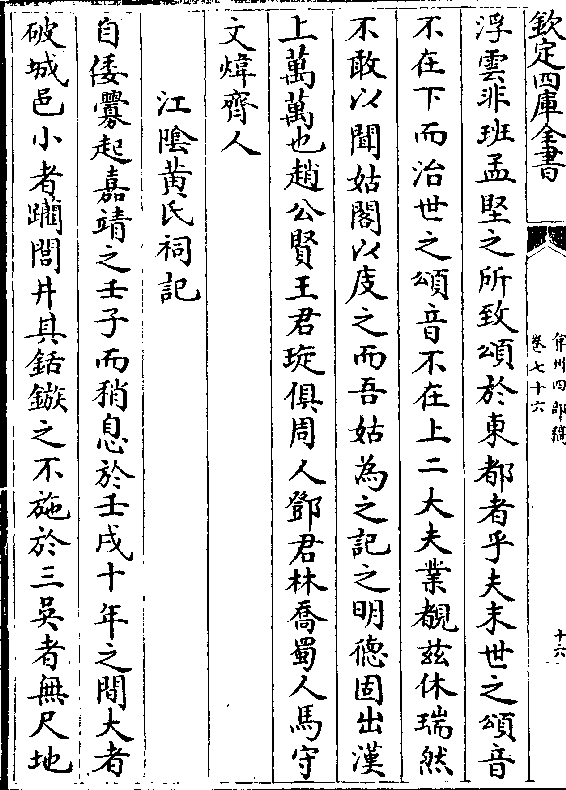 欽定四庫全書
弇州四部稿
卷七十六
十六
浮雲非班孟堅之所致頌於東都者乎夫末世之頌音
不在下而治世之頌音不在上二大夫業覩兹休瑞然
不敢以聞姑閣以庋之而吾姑為之記之明徳固出漢
上萬萬也趙公賢王君琁俱周人鄧君林喬蜀人馬守
文煒齊人
江隂黄氏祠記
自倭釁起嘉靖之壬子而稍息於壬戌十年之間大者
破城邑小者躪閭井其銛鏃之不施於三吳者無尺地